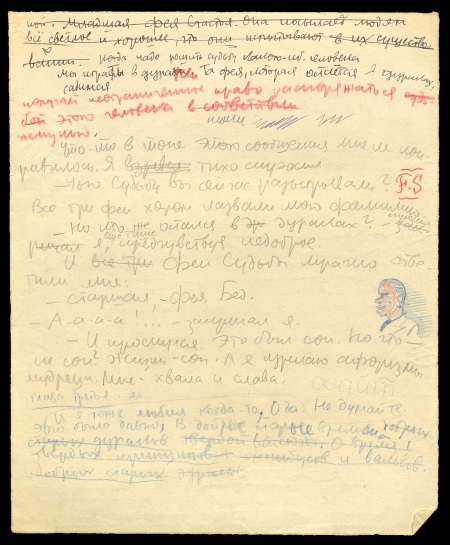 ной. Младшая - фея Счастья. Она посылает людям
всё светлое и хорошее, что они испытывают в их существо-
вании. Когда надо решить судьбу какого-ниб. человека
мы играем в дураки. Та фея, которая остается в дураках,
получает неограниченное право распоряжаться судь-
бой этого человека в соответствии
женщину.
Что-то в тоне этого сообщения мне не пон-
равилось. Я тихо спросил
- Чью судьбу вы сейчас разыгрывали?
F.S
Все три феи хором назвали мою фамилию.
- Но кто же остался в дураках? -
я, предчувствуя недоброе.
И все три феи Судьбы мрачно отве-
тили мне:
- Старшая, - фея Бед.
- А-а-а-а!... - закричал я.
- И проснулся. Это был сон. Но что -
не сон? Жизнь - сон. А я изрекаю афоризмы
мудреца. Мне - хвала и слава.
глава третья
И я тоже любил когда-то, О да. Не думайте.
Это было давно, в доброе старое время
О время!
и вальсов.
добрых старых